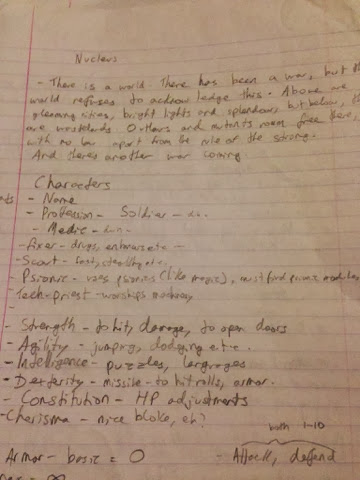 Nucleus
- There is a world. There has been a war, but the
world refuses to acknowledge this. Above are
gleaming cities, bright lights and splendour, but below, th
are wastelands. Outlaws and mutants roam free there,
with no law apart from the rule of the strong.
And theres another war coming
Characters
- Name
- Profession - Soldier -
- Medic -
- Fixer - drugs, enhancers etc -
- Scout - fast, stealthy etc.
- Psionic - uses psionics (like magic), must find psionic modules
- Tech-priest - worships machinery
- Strength - to hit, damage, to open doors
- Agility - jumping, dodging etc.
- Intelligence - puzzles, languages
- Dexterity - missile - to hit rolls, armor.
- Constitution - HP adjustments
- Charisma - nice bloke, eh?
both 1-10
Armor - basic = 0 - Attack, defend